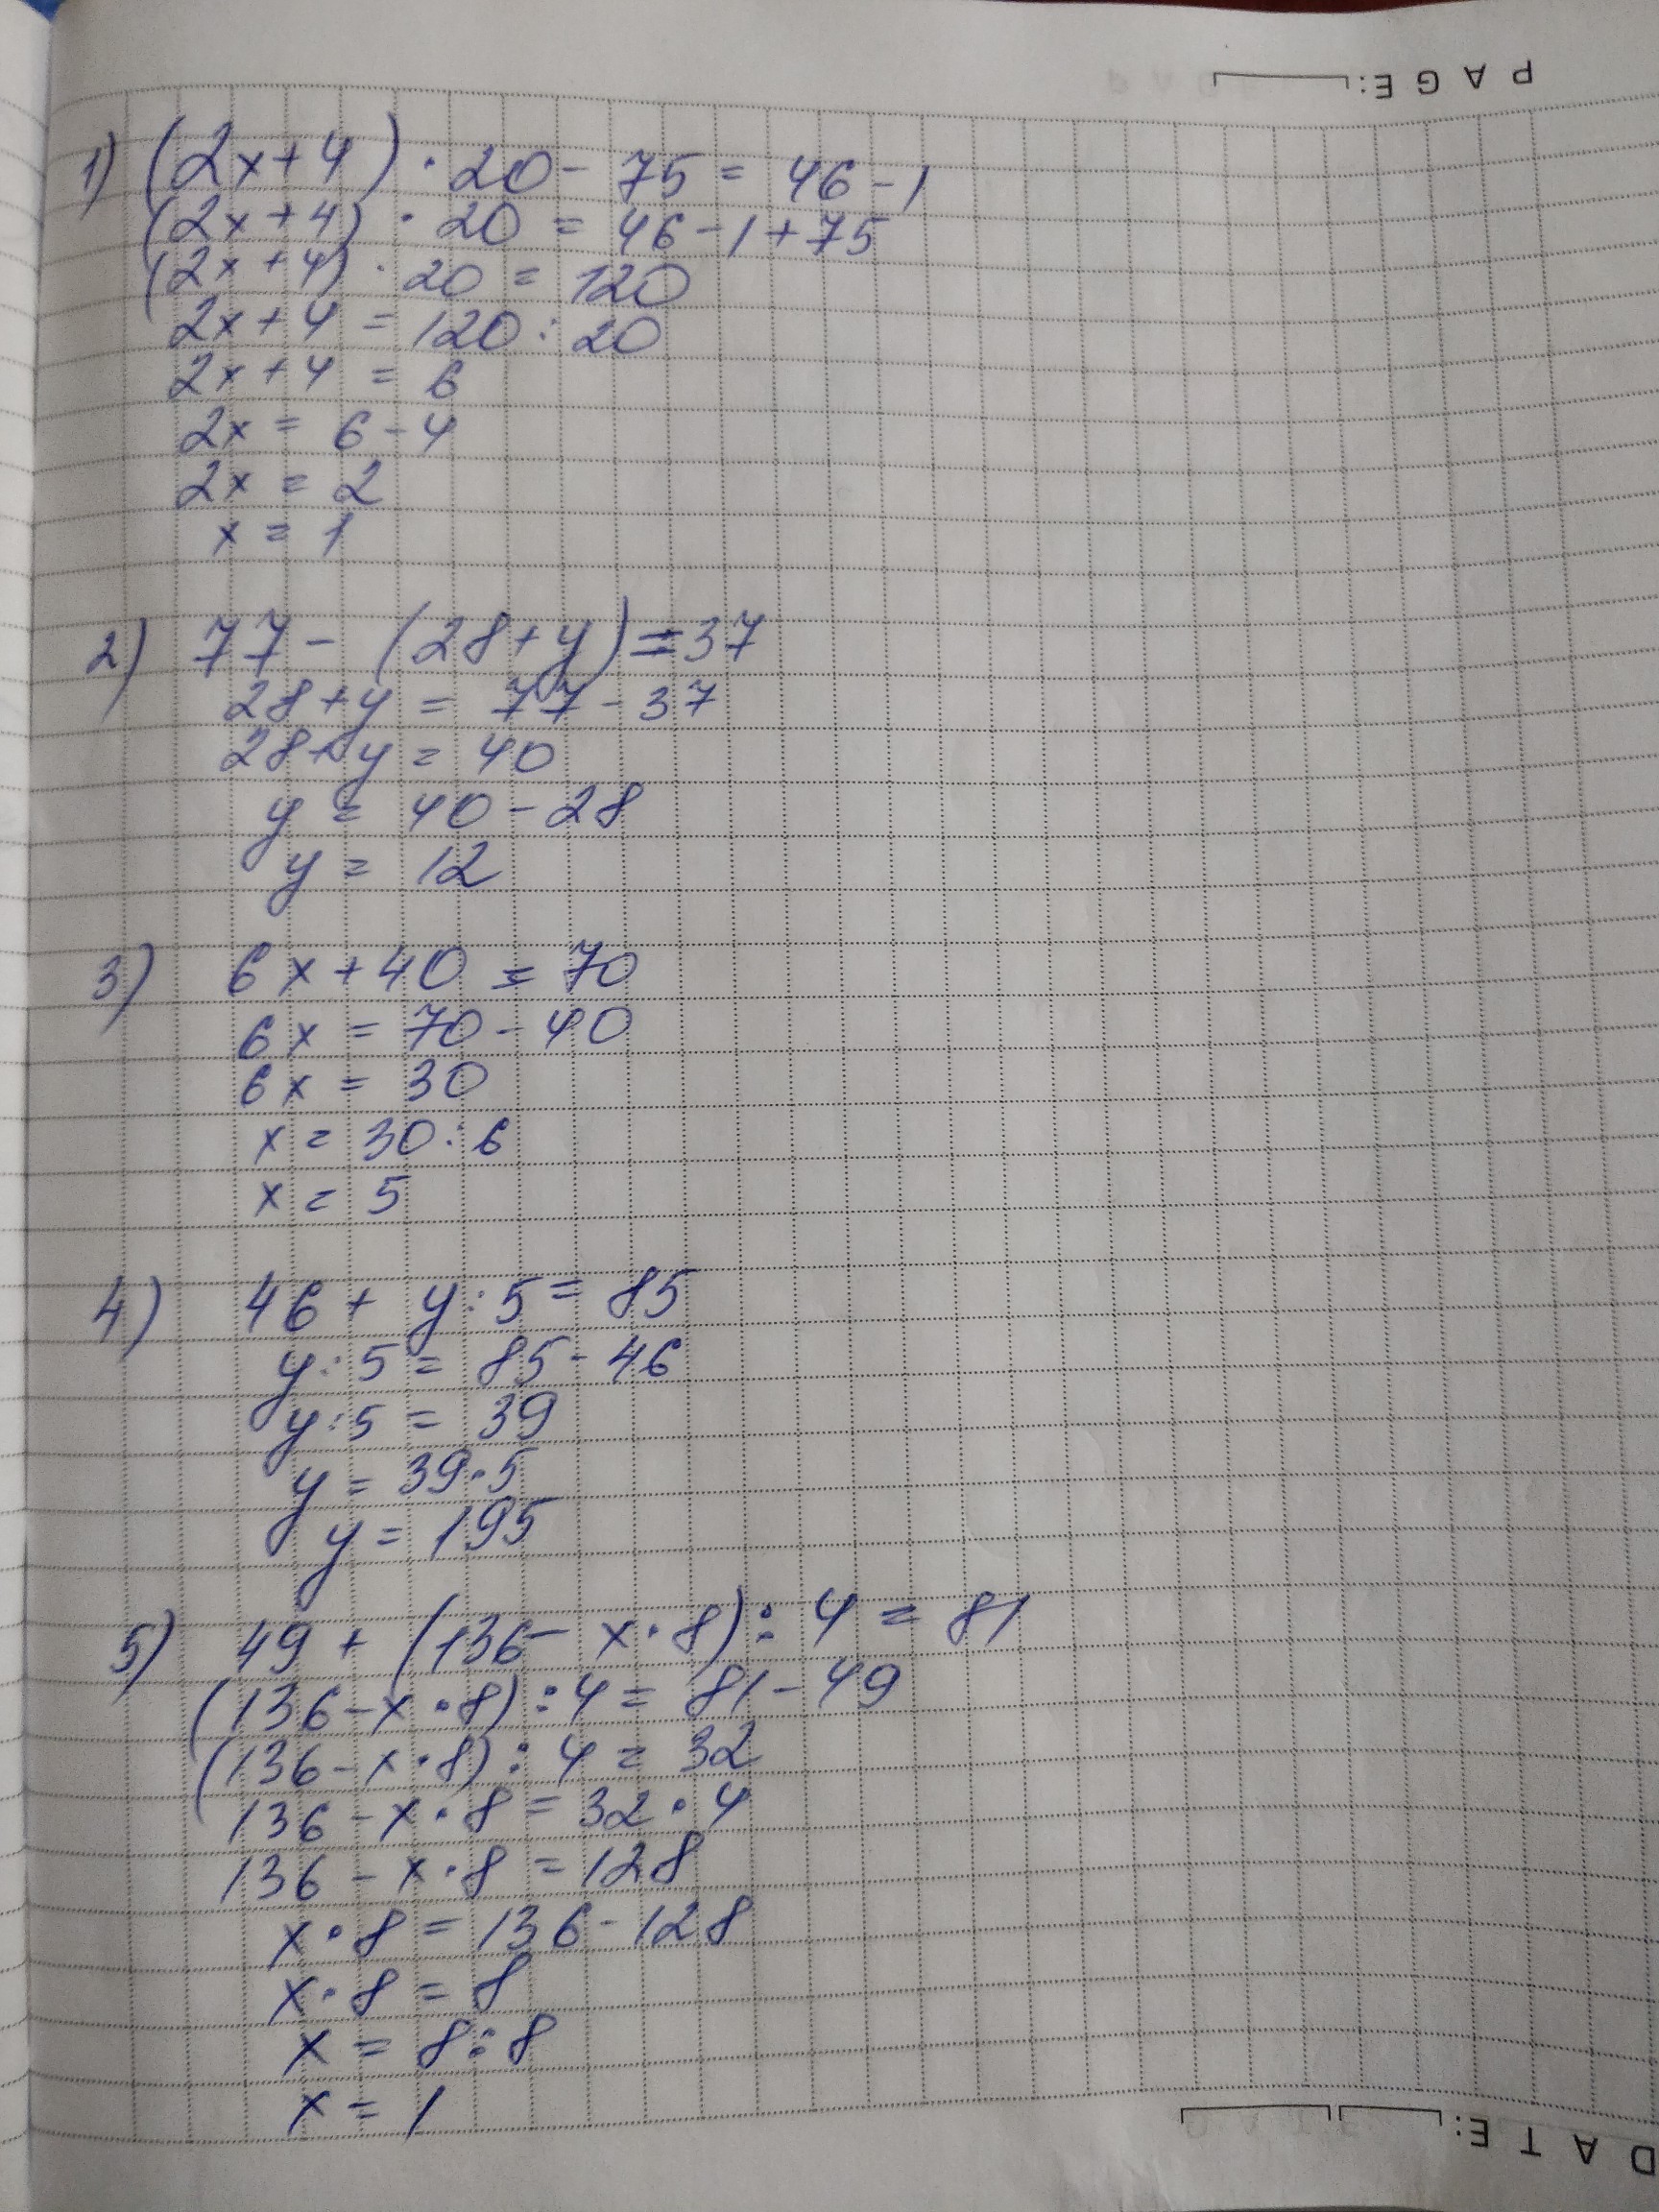 PAGE:
1) (2x+4)·20-75=46-1
(2x+4)·20=46-1+75
(2x+4)·20=120
2x+4=120:20
2x+4=6
2x=6-4
2x=2
x=1
2) 77-(28+y)=37
28+y=77-37
28+y=40
y=40-28
y=12
3) 6x+40=70
6x=70-40
6x=30
x=30:6
x=5
4) 46+y:5=85
y:5=85-46
y:5=39
y=39·5
y=195
5) 49+(136-x·8):4=81
(136-x·8):4=81-49
(136-x·8):4=32
136-x·8=32·4
136-x·8=128
x·8=136-128
x·8=8
x=8:8
x=1
DATE: